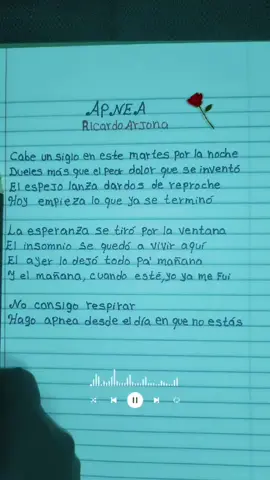 APNEA
Ricardo Arjona
Cabe un siglo en este martes por la noche
Dueles más que el peor dolor que se inventó
El espejo lanza dardos de reproche
Hoy empieza lo que ya se terminó
La esperanza se tiró por la ventana
El insomnio se quedó a vivir aquí
El ayer lo dejó todo pa' mañana
Y el mañana, cuando esté, yo ya me fui
No consigo respirar
Hago apnea desde el día en que no estás